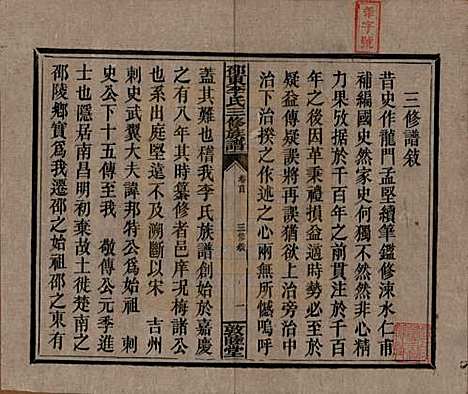 三修譜敘
昔史作龍門孟堅續筆鑑修涑水仁甫
補編國史然家史何獨不然然非心精
力果攷據於千百年之前貫注於千百
年之後因革秉禮損益適時旁切必至
疑益傳疑誤將再誤猶欲上治
治下治揆之作述之心兩無所憾嗚呼
邵東李氏三修族譜
卷首
三修敘
一
敦睦堂
蓋其難也稽我李氏族譜創始於嘉慶
之有八年其時纂修者邑庠況梅
系出西庭堅遠不及溯以宋 吉州
刺史武翼大夫諱邦特公爲始祖 刺
史公下十五傳至我 敬傳公元季進
士也隱居南昌明初乘故土徙楚南之
邵陵鄉實爲我遷邵之始祖邵之東有